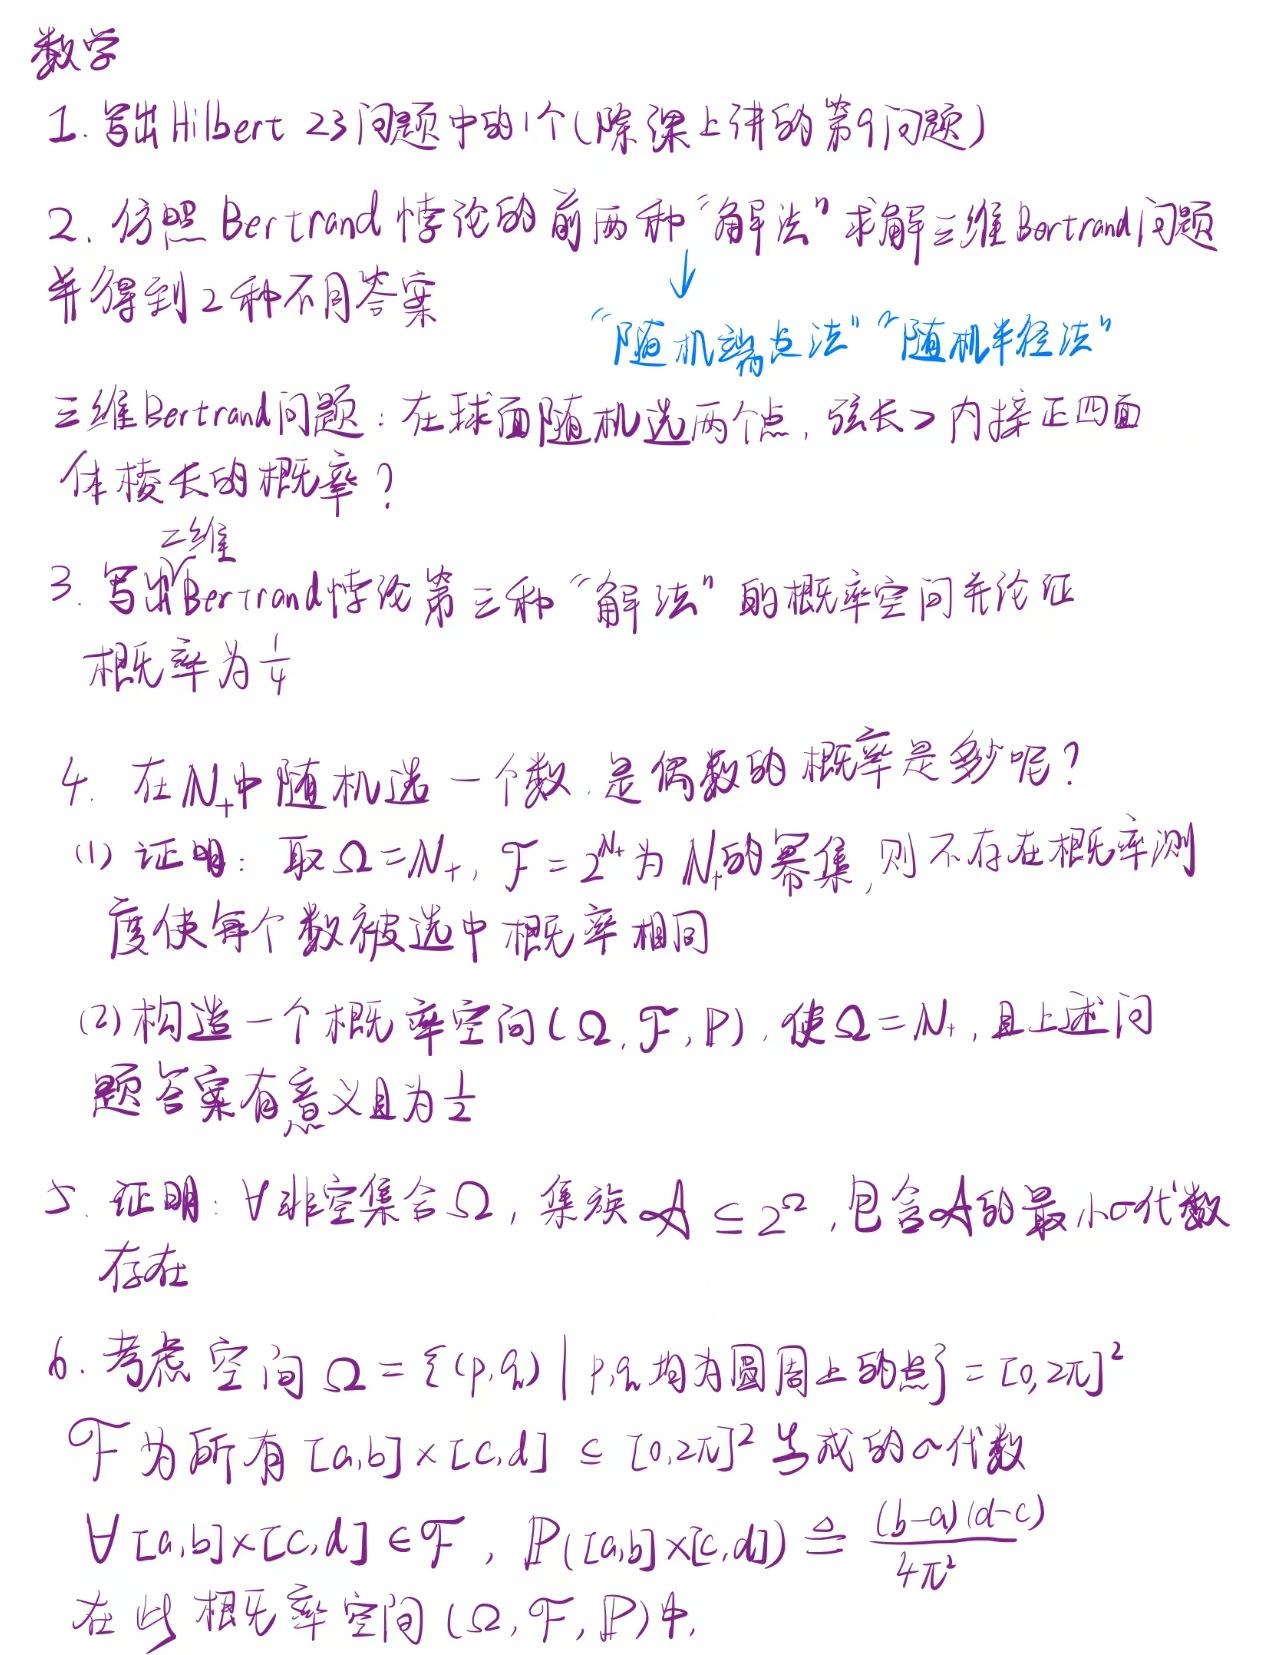 数学
1. 写出Hilbert 23问题中的1个(除课上讲的第9问题)
2. 仿照Bertrand悖论的前两种“解法”求解三维Bertrand问题
并得到2种不同答案
↓
“随机端点法”“随机半径法”
三维Bertrand问题:在球面随机选两个点,弦长>内接正四面
体棱长的概率?
二维
3. 写出Bertrand悖论第三种“解法”的概率空间并论证
概率为1/4
4. 在N₊中随机选一个数,是偶数的概率是多少呢?
(1) 证明:取Ω=N₊, ℱ=2^{N₊}为N₊的幂集,则不存在概率测
度使每个数被选中概率相同
(2) 构造一个概率空间(Ω,ℱ,ℙ),使Ω=N₊,且上述问
题答案有意义且为1/2
5. 证明:∀非空集合Ω,集族𝒜⊆2^Ω,包含𝒜的最小σ代数
存在
6. 考虑空间Ω={(p,q)|p,q均为圆周上的点}=[0,2π]²
ℱ为所有[a,b]×[c,d]⊆[0,2π]²生成的σ代数
∀[a,b]×[c,d]∈ℱ, ℙ([a,b]×[c,d])≙(b-a)(d-c)/4π²
在此概率空间(Ω,ℱ,ℙ)中,